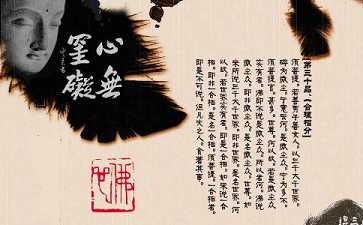 心無
罣礙
《第三十品、一合理相分》
须菩提。若善男子善女人。以三千大千世界
碎为微尘。于意云何。是微尘众。宁为多不。
须菩提言。甚多。世尊。何以故。若是微尘众
实有者。佛即不说是微尘众。所以者何。佛说
微尘众。即非微尘众。是名微尘众。世尊。如
来所说三千大千世界。即非世界。是名世界。何
以故。若世界实有者。即是一合相。如来说一合
相。即非一合相。是名一合相。须菩提。一合相者。
即是不可说。但凡夫之人。贪著其事。
佛